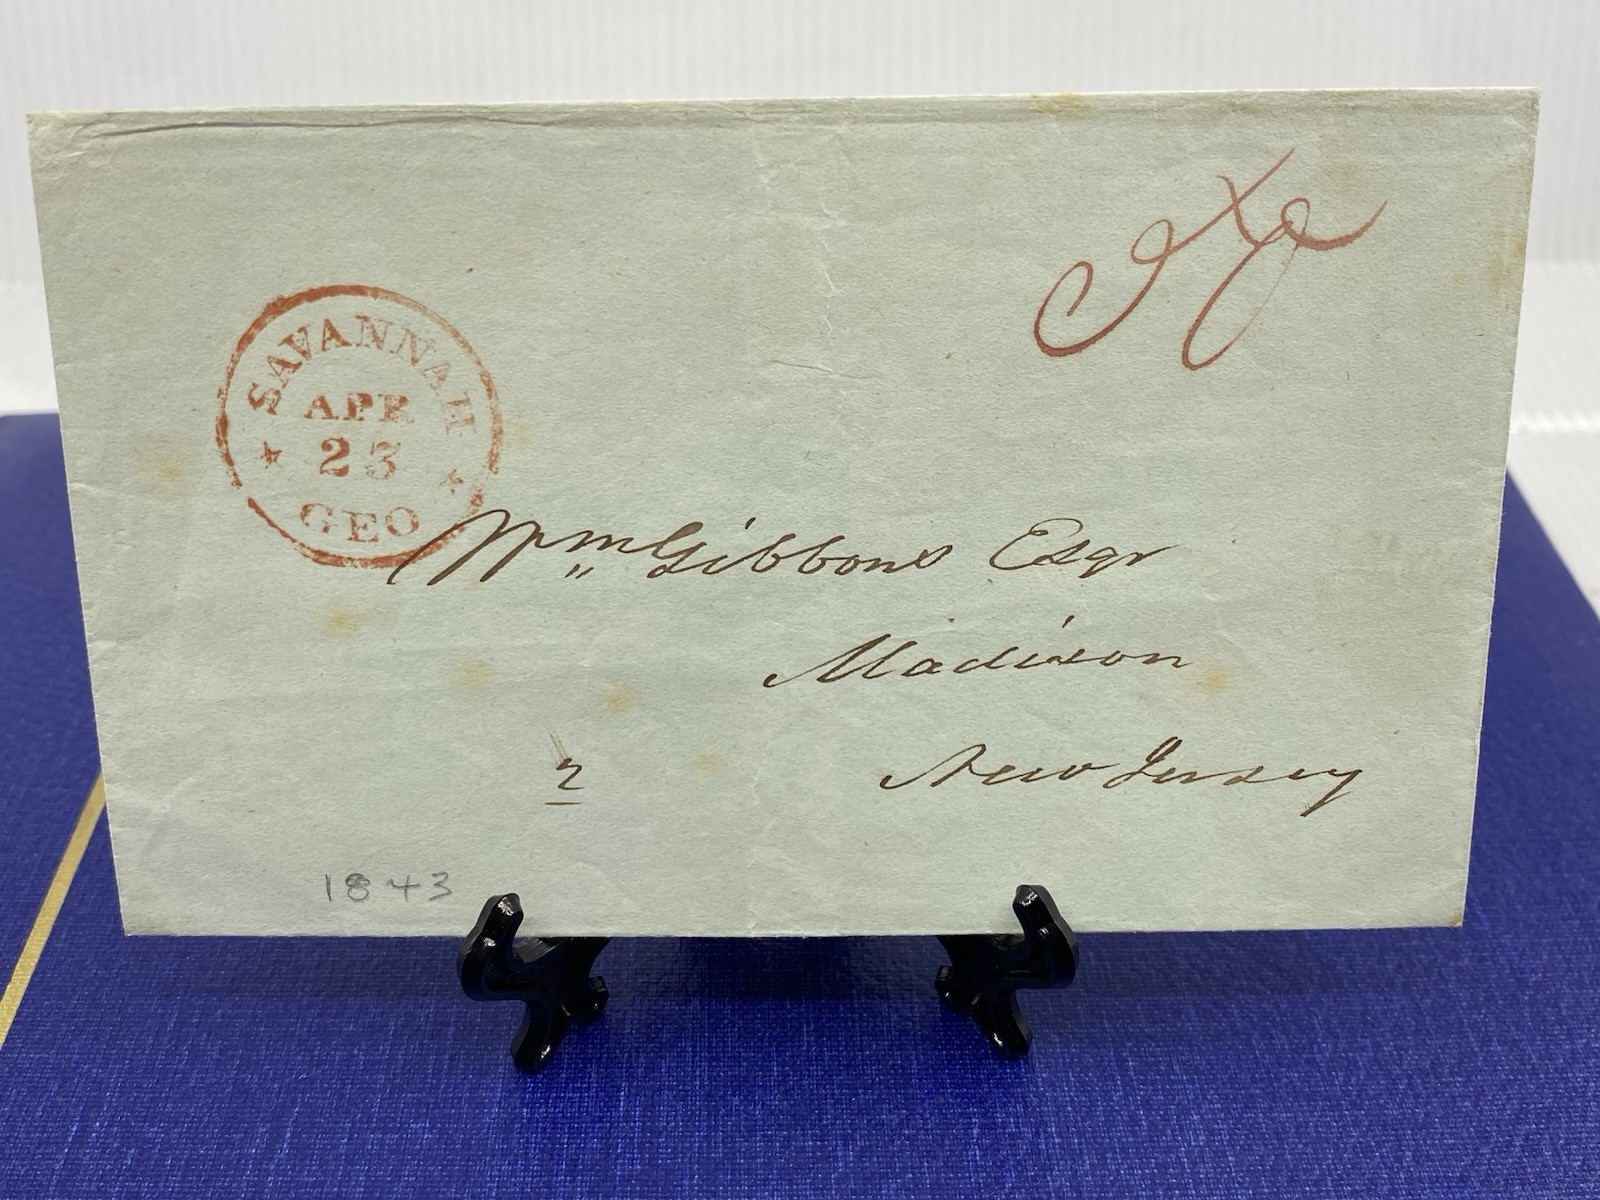 SAVANNAH
APR
23
GEO
Wm Gibbons Esqr
Madison
New Jersey
2
1843